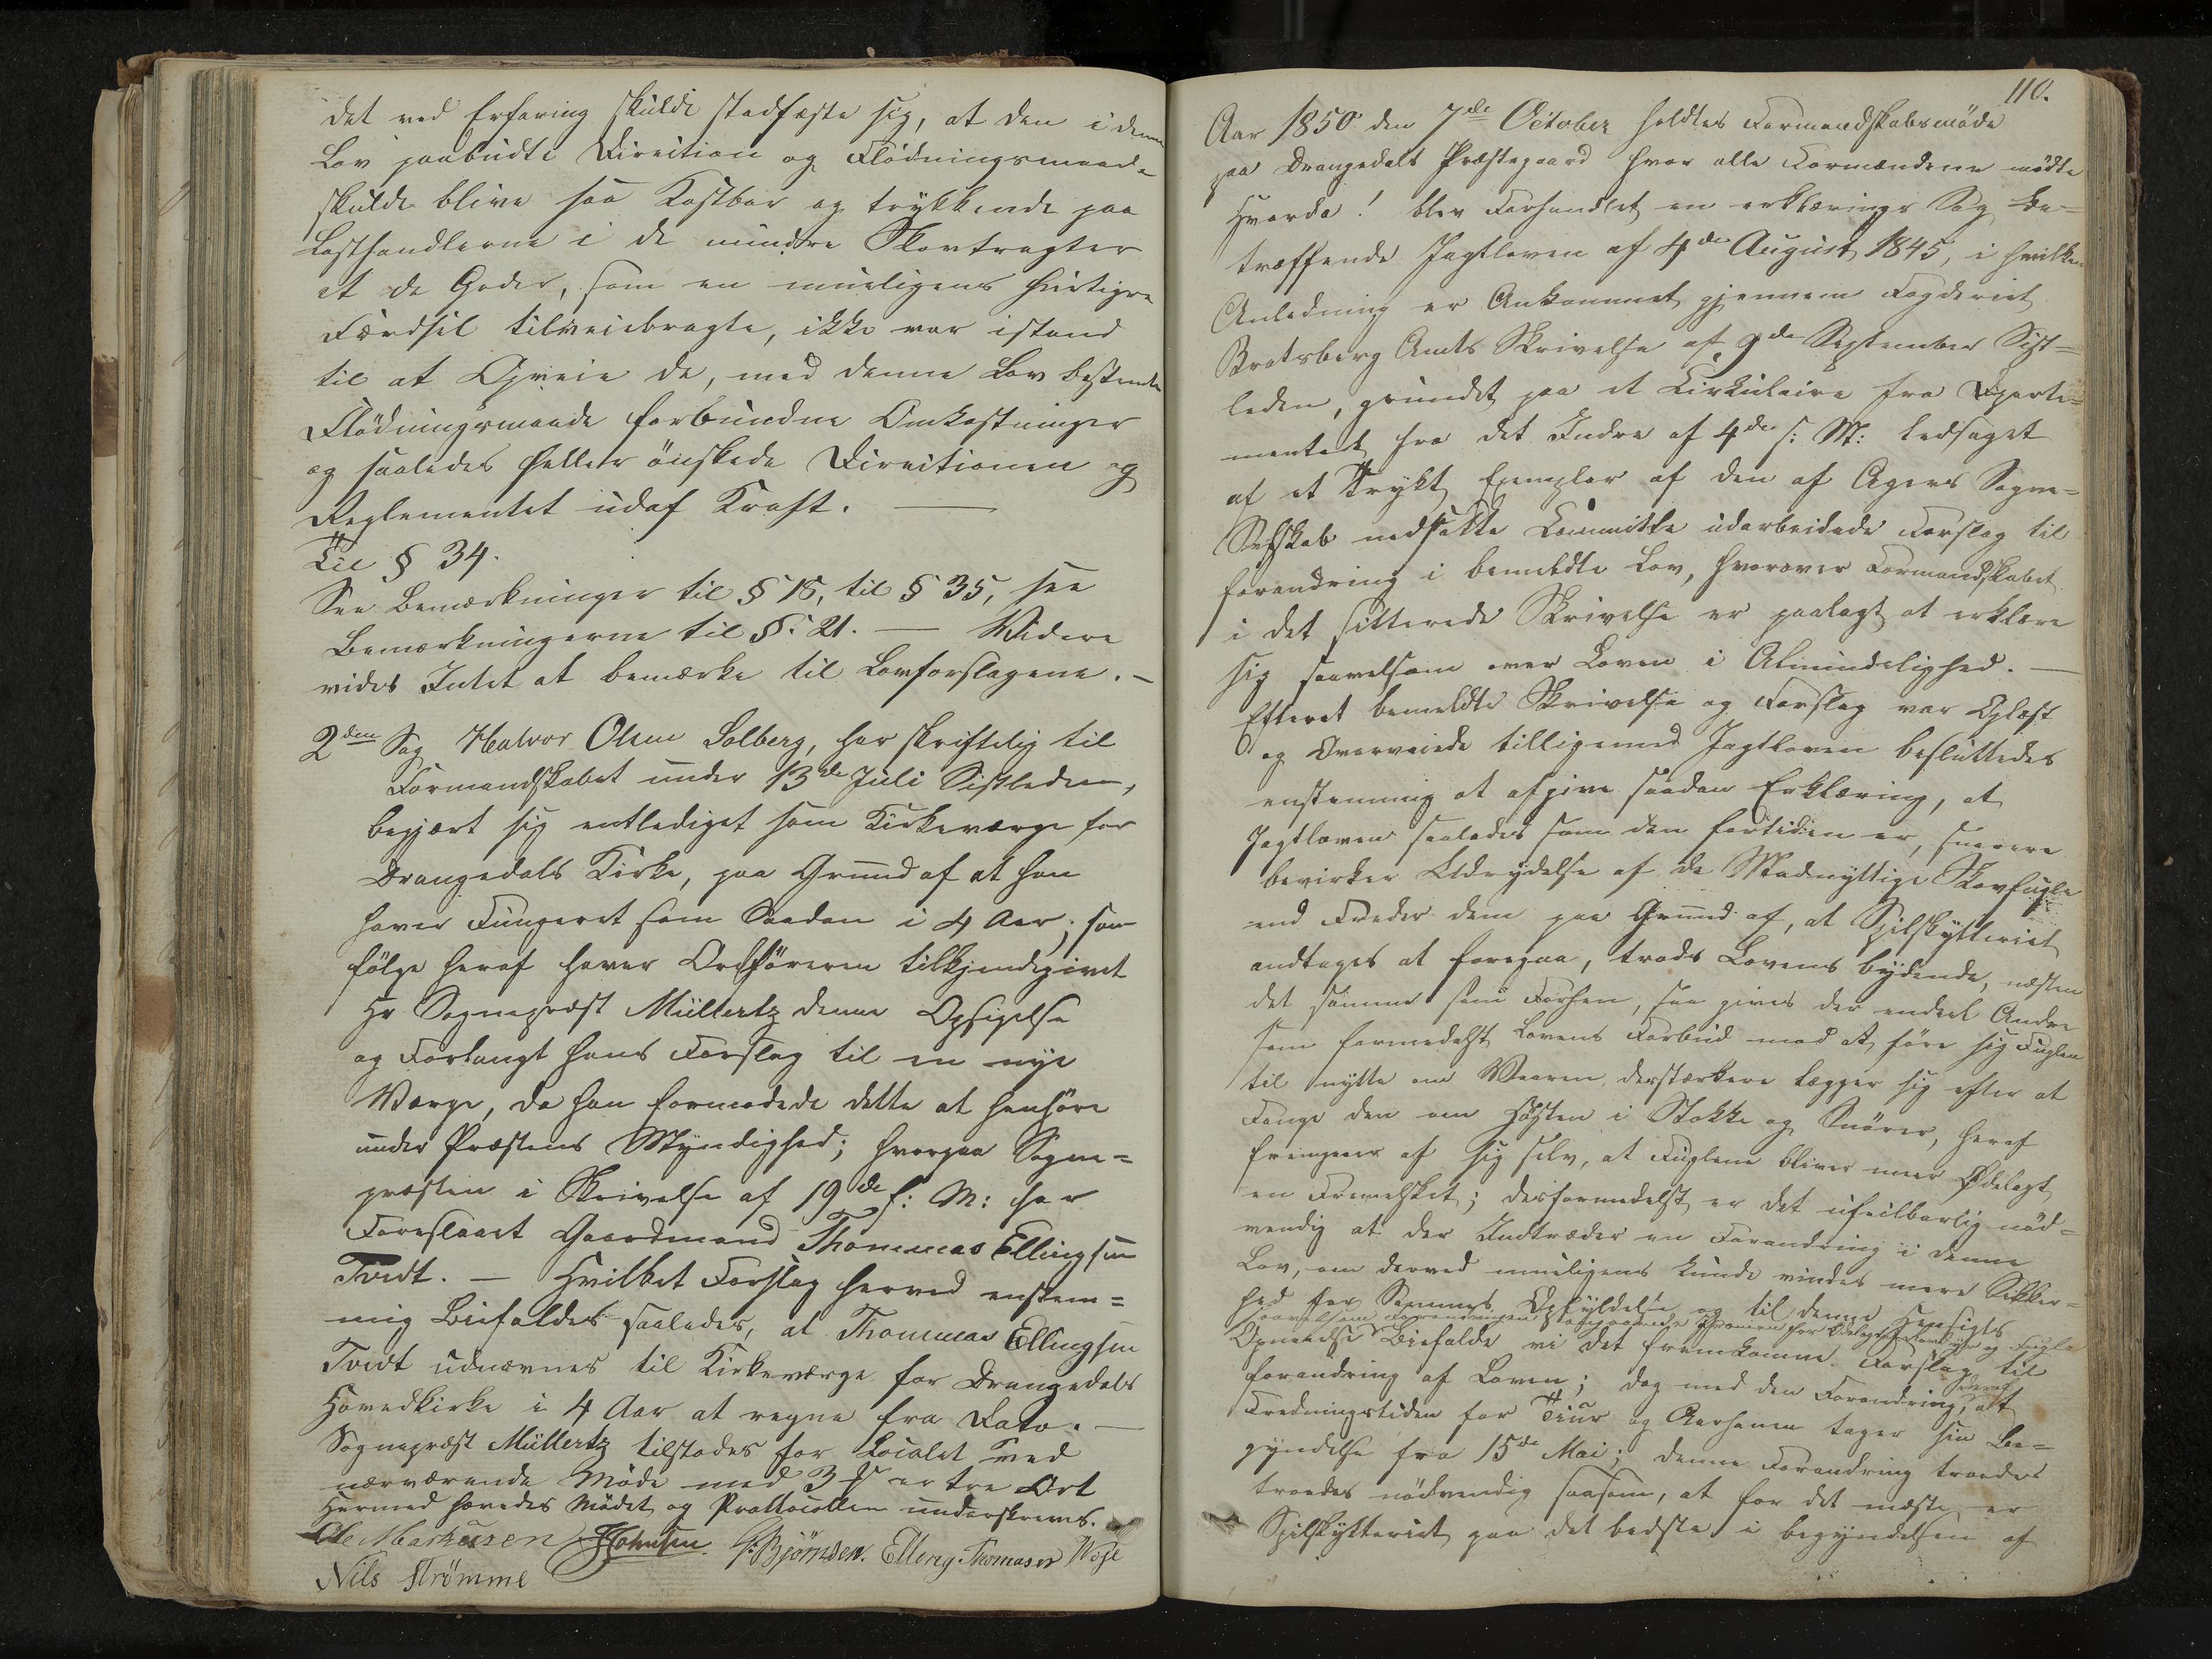 det ved Erfaring skulde stadfæste sig, at den i denne
Lov paabudte Direction og Flödningsmaade
skulde blive saa Kostbar og trykkende paa
Lasthandlerne i de mindre Skovtragter
at de Goder, som en mueligens hurtigere
Færdsel tilveiebragte, ikke var istand
til at Opveie de, med denne Lov bestemte
Flödningsmaade forbundne Omkostninger
og saaledes heller önskede Directionen og
Reglementet udaf Kraft. —
Til § 34.
See Bemærkninger til § 18, til § 35, see
Bemærkningerne til §. 21. — Widere
vides Intet at bemærke til Lovforslagene. —
2den Sag Halvor Olsen Solberg, har skriftelig til
Formandskabet under 13de Juli Sistleden,
begjært sig entlediget som Kirkeværge for
Drangedals Kirke, paa Grund af at han
haver Fungeret som Saadan i 4 Aar; som
fölge heraf haver Ordföreren tilkjendegivet
Hr Sognepræst Müllertz denne Opsigelse
og Forlangt hans Forslag til en nye
Værge, da han formodede dette at henhöre
under Præstens Myndighed; hvorpaa Sogne=
præsten i Skrivelse af 19de s: M: har
Foreslaaet Gaardmand Thommas Ellingsen
Tvedt. — Hvilket Forslag herved enstem=
mig Biefaldes saaledes, at Thommas Ellingsen
Tvedt udnævnes til Kirkeværge for Drangedals
Hovedkirke i 4 Aar at regne fra Dato. —
Sognepræst Müllertz tilstodes for Localet ved
nærværende Möde med 3 er tre Ort
Hermed hævedes Mödet og Prottocollen underskreves.
Ole Markusen Johnsen G. Bjørnsen. Elleng Thomasen Woje
Nils Strömme
110.
Aar 1850 den 7de October holdtes Formandskabsmöde
paa Drangedals Præstegaard hvor alle Formændene mödte
Hvorda! blev Forhandlet en erklærings Sag be=
træffende Jagtloven af 4de August 1845, i hvilken
Anledning er Ankommet gjennem Fogderiet
Bratsberg Amts Skrivelse af 9de September Sist=
leden, grundet paa et Cirkulaire fra Departe=
mentet for det Indre af 4de s: M: ledsaget
af et Trykt Exemplar af den af Agers Sogne=
Selskab nedsatte Committee udarbeidede Forslag til
forandring i bemeldte Lov, hvorover Formandskabet
i det sitterede Skrivelse er paalagt at erklære
sig saavelsom over Loven i Almindelighed. —
Efterat bemeldte Skrivelse og Forslag var Oplæst
og Overveiede tilligemed Jagtloven besluttedes
enstemmig at afgive saadan Erklæring, at
Jagtloven saaledes som den fortiden er, snarere
bevirker Udrydelse af de Madnyttige Skovfugle
end Freder dem paa Grund af, at Spilskytteriet
andtages at foregaa, trods Lovens bydende, næsten
det samme som Forhen, saa gives der endeel Andre
som formedelst Lovens Forbud mod at före sig Fuglen
til nytte om Vaaren, desstærkere lægger sig efter at
Fange den om Hösten i Stokke og Snörer, heraf
fremgaaer af sig selv, at Fuglene bliver meer Ødelagt
en Fremelsket; desformedelst er det ufeilbarlig nöd=
vendig at der Indtræder en Forandring i denne
Lov, om derved mueligens kunde vindes mere Sikker=
hed for Sammes Opfyldelse og til denne Hensigts
saavelsom Forandringen angaaende Præmien for Ødelagt Rovdyr og Fugle
Opnaaelse Biefalde vi det fremkomne Forslag til
forandring af Loven; dog med den Forandring, at
Fredningstiden for Tiur og Aarhanen tager sin Be=
gyndelse fra 15de Mai; denne Forandring troedes
troedes nödvendig saasom, at for det meste er
Spilskytteriet paa det bedste i begyndelsen af